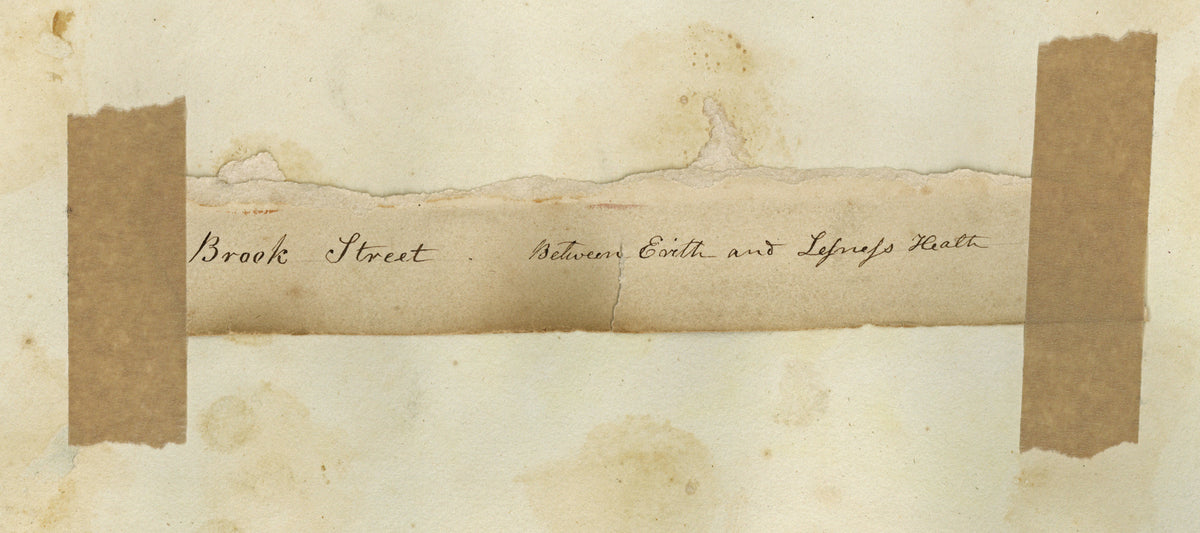 Brook Street. Between Erith and Leſneſs Heath